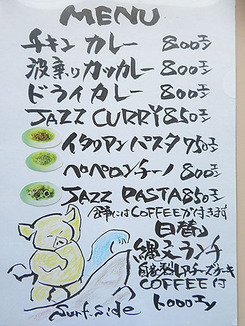 MENU
チキン カレー 800エン
波乗りカツカレー 800エン
ドライカレー 800エン
JAZZ CURRY 850エン
イタリアンパスタ 750エン
ペペロンチーノ 800エン
JAZZ PASTA 850エン
食事にはCOFFEEが付きます
日替り
縄文ランチ
自家製レアチーズケーキ
COFFEE付
1000エン
Surf.Side